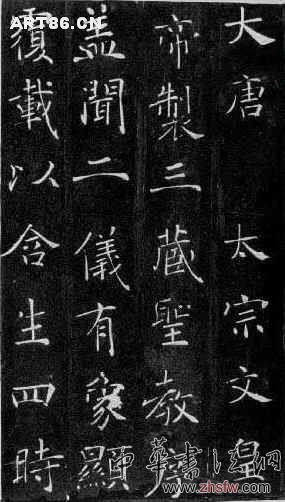 ART86.CN
大唐 太宗文皇
帝製三藏聖教
盖聞二儀有象顯
覆載以含生四時
中华书法网
www.zhsfw.com